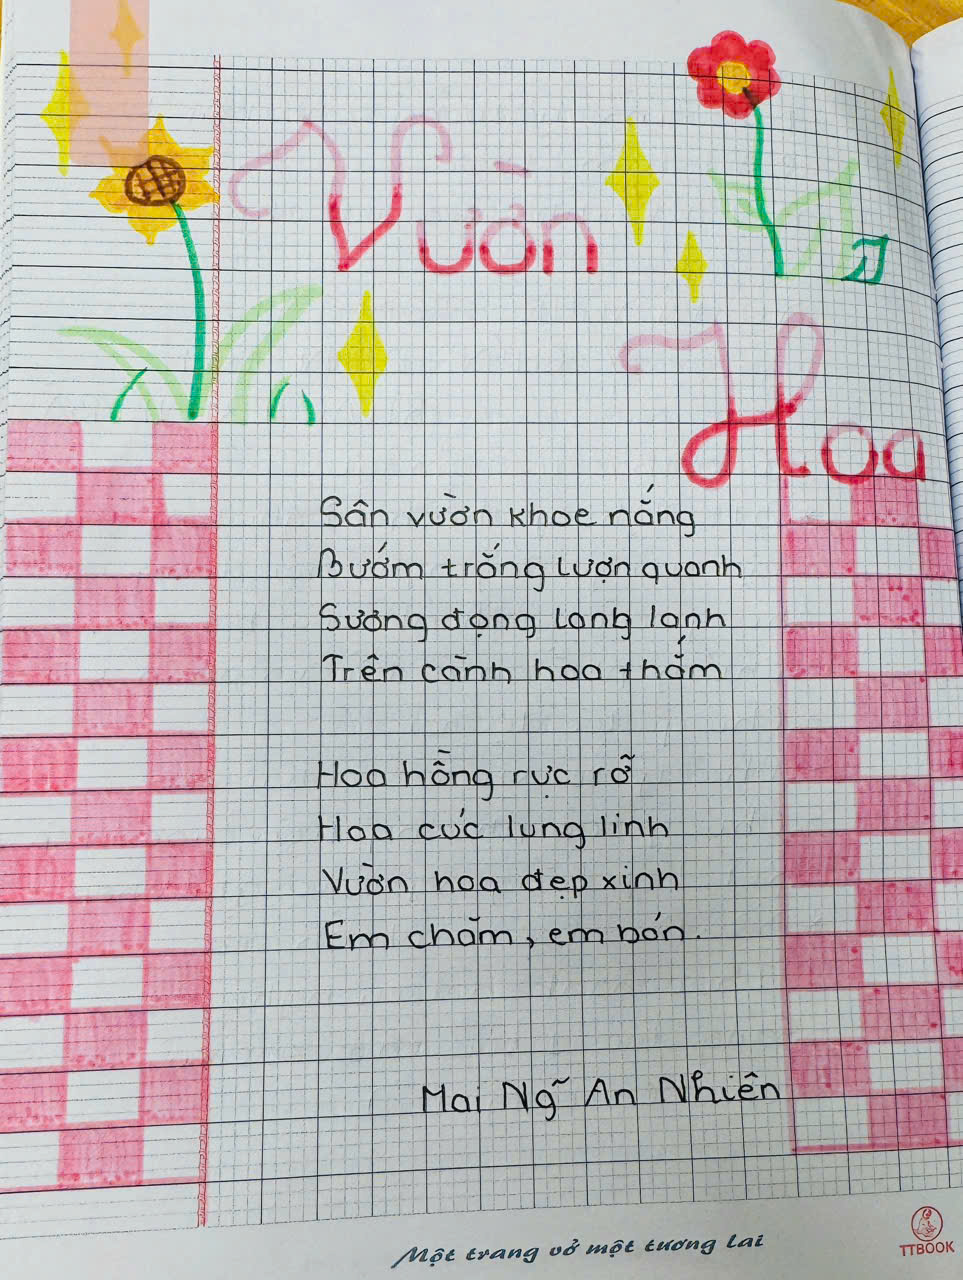 Vườn
Hoa
Sân vườn khoe nắng
Bướm trắng lượn quanh
Sương đọng long lanh
Trên cành hoa thắm
Hoa hồng rực rỡ
Hoa cúc lung linh
Vườn hoa đẹp xinh
Em chăm, em bón.
Mai Ng~ An Nhiên
Một trang vở một tương lai
TTBOOK